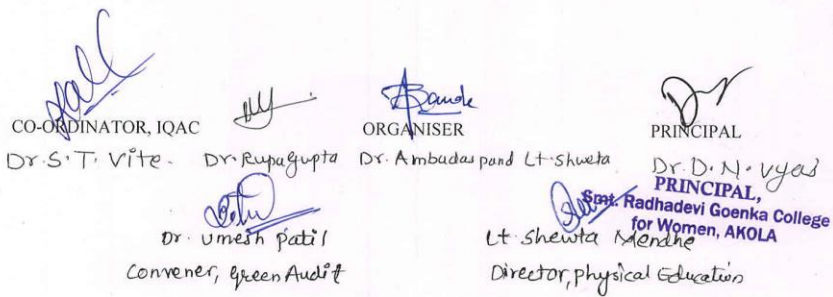 CO-ORDINATOR, IQAC ORGANISER PRINCIPAL
Dr. S. T. Vite. Dr. Rupa Gupta Dr. Ambadas pand Lt. Shweta Dr. D. N. Vyas
PRINCIPAL,
Smt. Radhadevi Goenka College
for Women, AKOLA
Dr. Umesh Patil Lt Shewta Mendhe
Convener, Green Audit Director, physical Education